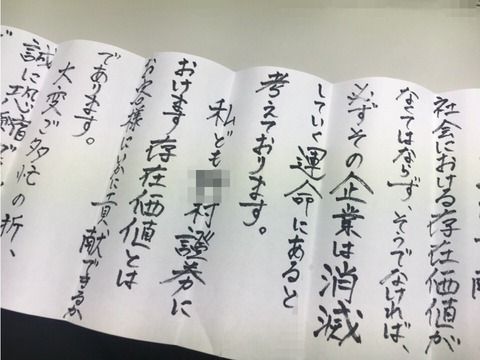 社会における存在価値が
なくてはならず、そうでなければ、
必ずその企業は消滅
していく運命にあると
考えております。
私ども村證券に
おけます存在価値とは
お客様にいかに貢献できるか
であります。
大変ご多忙の折、
誠に恐縮で